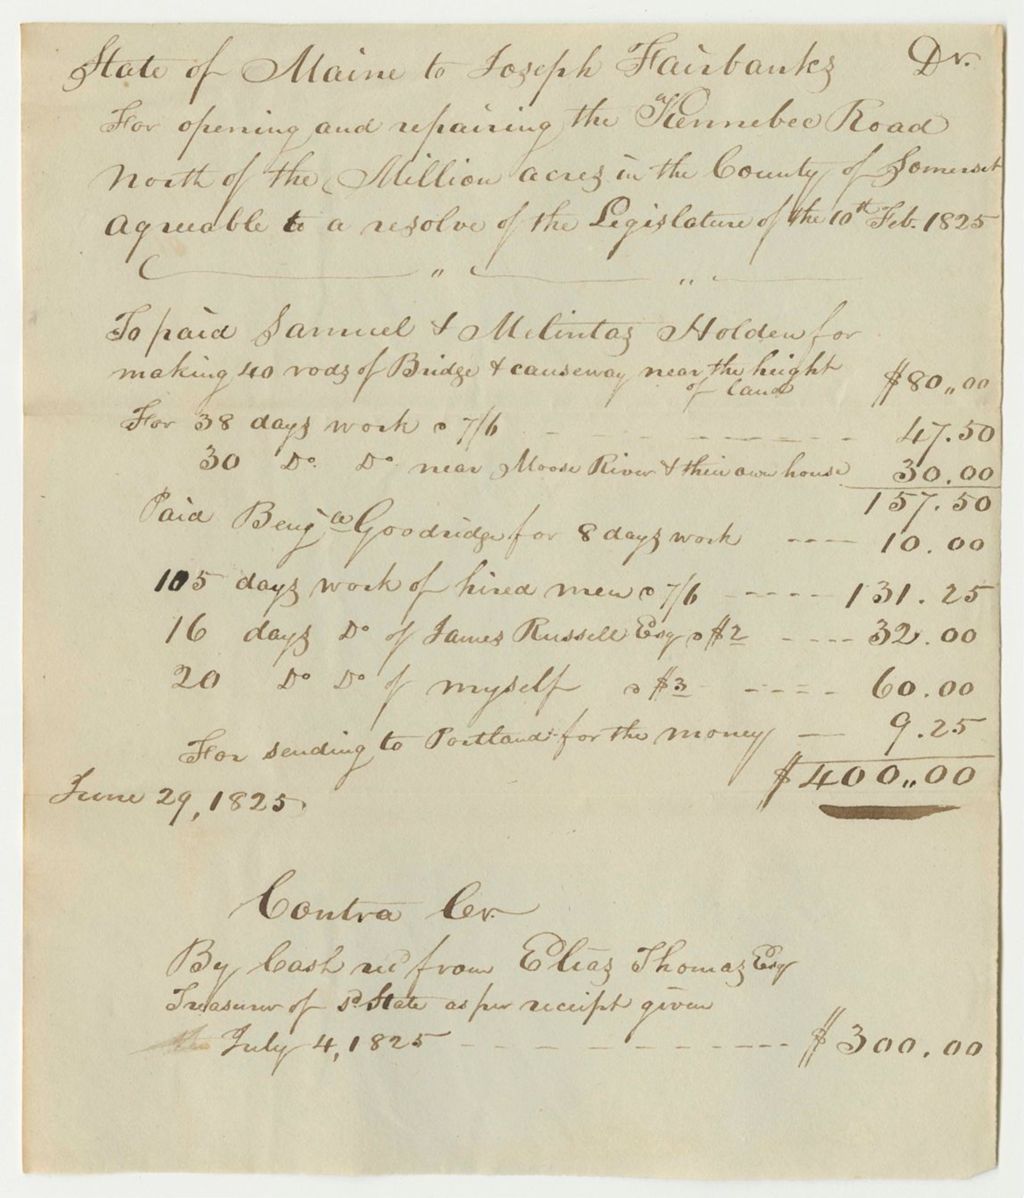 State of Maine to Joseph Fairbanks Dr.
For opening and repairing the Kennebec Road
North of the Million acres in the County of Somerset
Agreeable to a resolve of the Legislature of the 10th Feb. 1825
" "
To paid Samuel & Milintas Holden for
making 40 rods of Bridge & causeway near the height
of land $80,,00
For 38 days work @ 7/6 47.50
30 Do. Do. near Moose River & their own house 30.00
157.50
Paid Benja Goodridge for 8 days work 10.00
105 days work of hired men @ 7/6 131.25
16 days Do of James Russell Esq @ $2 32.00
20 Do Do of myself @ $3 60.00
For sending to Portland for the money 9.25
$400,,00
June 29, 1825.
Contra Cr.
By Cash recd from Elias Thomas Esq
Treasurer of sd State as per receipt given
July 4, 1825 $300.00